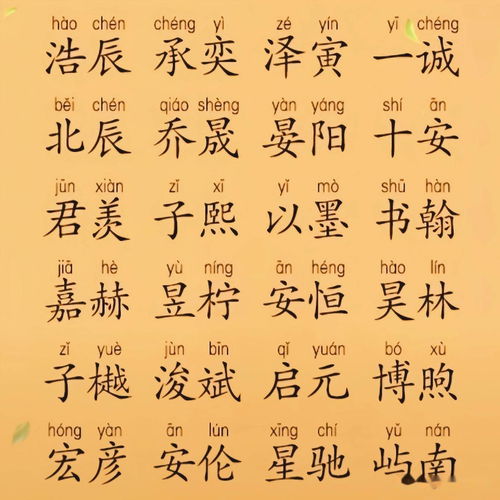 hào chén chéng yì zé yín yī chéng
浩辰 承奕 泽寅 一诚
běi chén qiáo shèng yàn yáng shí ān
北辰 乔晟 晏阳 十安
jūn xiàn zǐ xī yǐ mò shū hàn
君羡 子熙 以墨 书翰
jiā hè yù níng ān héng hào lín
嘉赫 昱柠 安恒 昊林
zǐ yuè jùn bīn qǐ yuán bó xù
子樾 浚斌 启元 博煦
hóng yàn ān lún xīng chí yǔ nán
宏彦 安伦 星驰 屿南